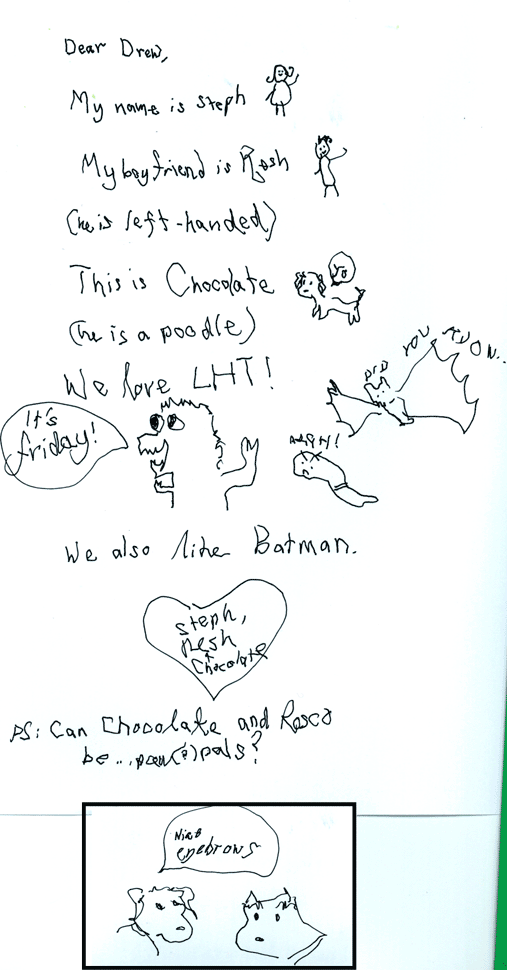 Dear Drew,
My name is steph
My boyfriend is Resh
(he is left-handed)
This is Chocolate
yo
(he is a poodle)
We love LHT!
DID YOU PUT ON...
It's
friday!
ARGH!
We also like Batman.
steph,
Resh
+
Chocolate
PS: Can Chocolate and Rosco
be... pen(?) pals?
Nice
eyebrows